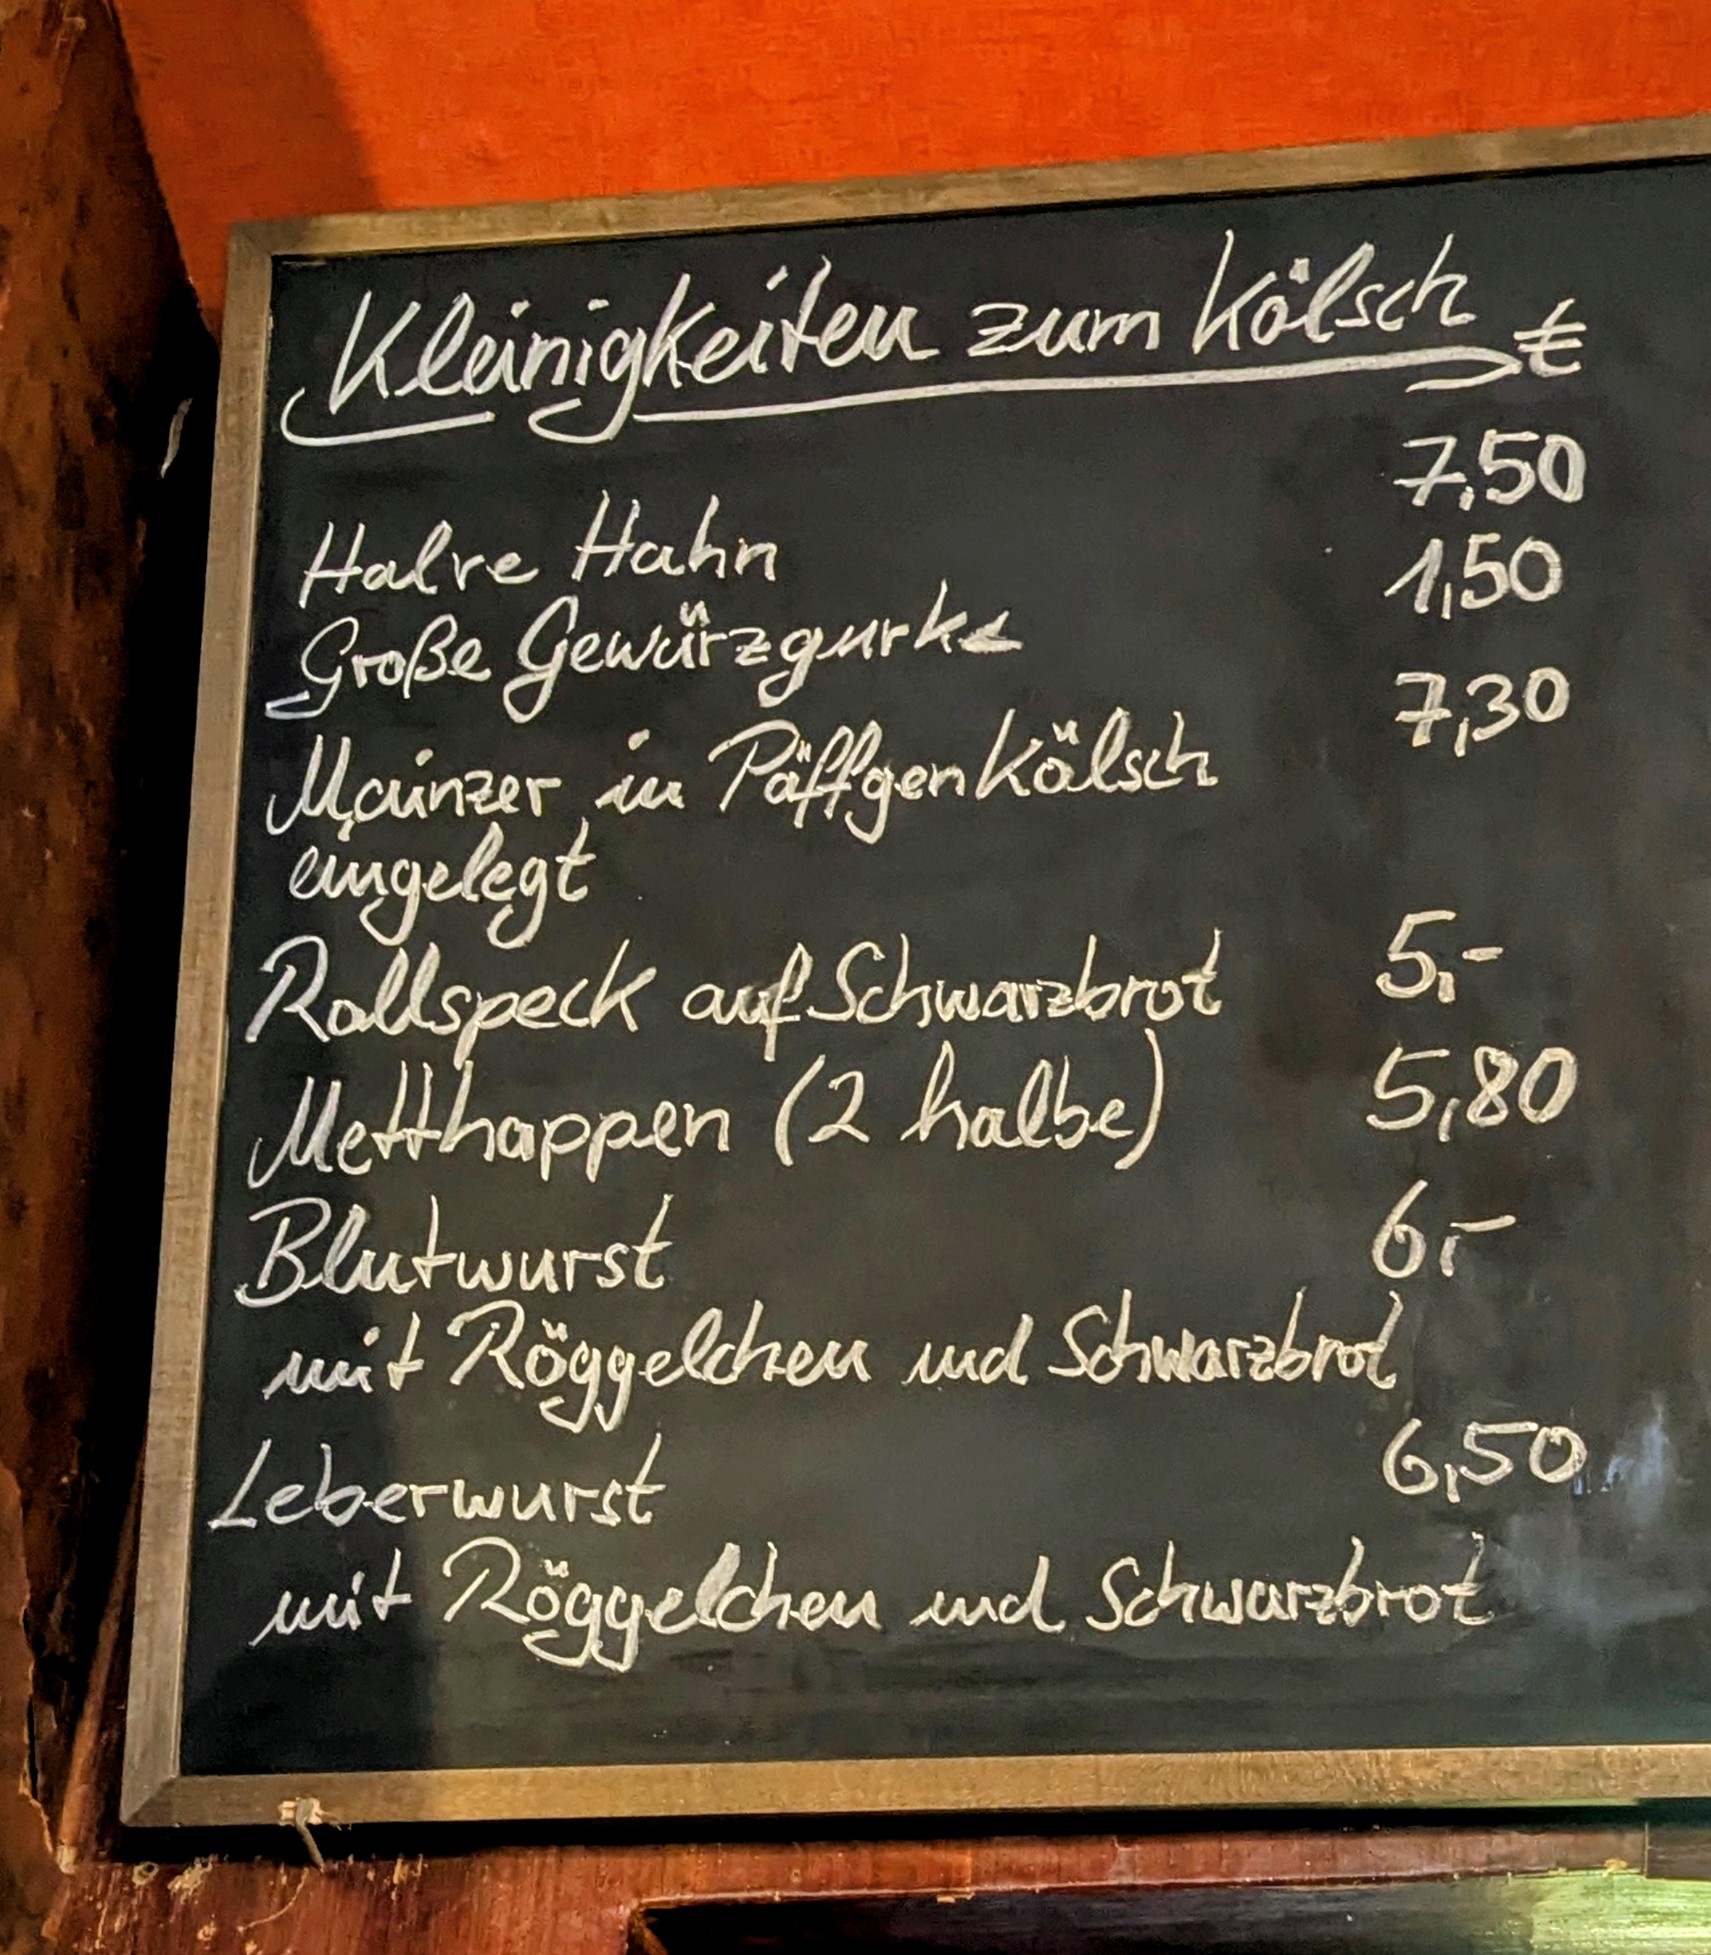 Kleinigkeiten zum Kölsch €
Halve Hahn 7,50
Große Gewürzgurke 1,50
Mainzer in Päffgen Kölsch 7,30
eingelegt
Rollspeck auf Schwarzbrot 5,-
Metthappen (2 halbe) 5,80
Blutwurst 6,-
mit Röggelchen und Schwarzbrot
Leberwurst 6,50
mit Röggelchen und Schwarzbrot